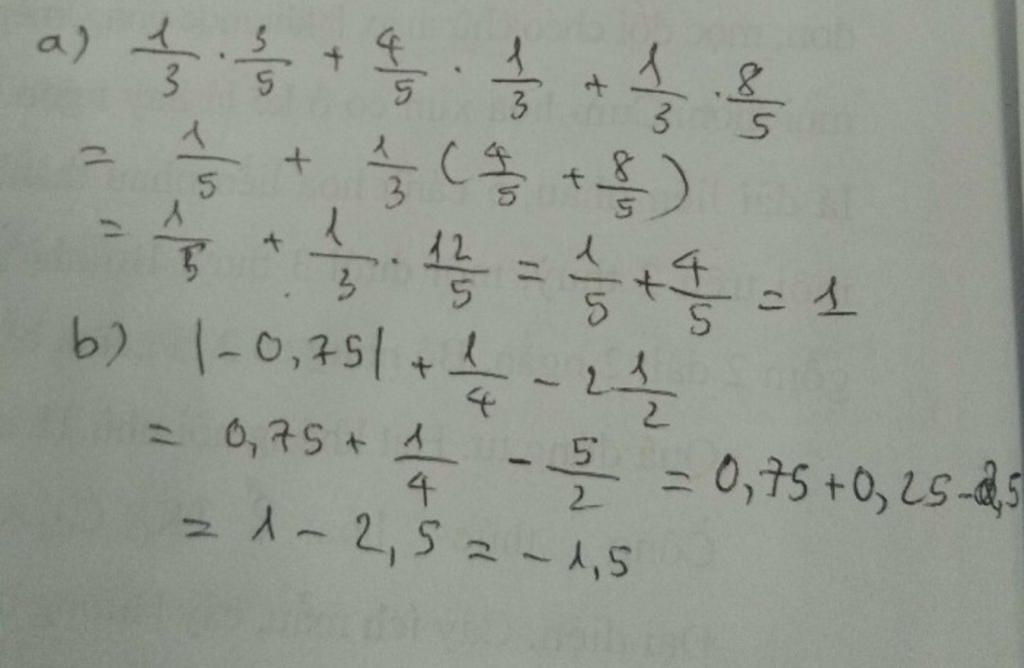 a) 1/3 . 3/5 + 4/5 . 1/3 + 1/3 . 8/5
= 1/5 + 1/3 (4/5 + 8/5)
= 1/5 + 1/3 . 12/5 = 1/5 + 4/5 = 1
b) |-0,75| + 1/4 - 2 1/2
= 0,75 + 1/4 - 5/2 = 0,75 + 0,25 - 2,5
= 1 - 2,5 = -1,5